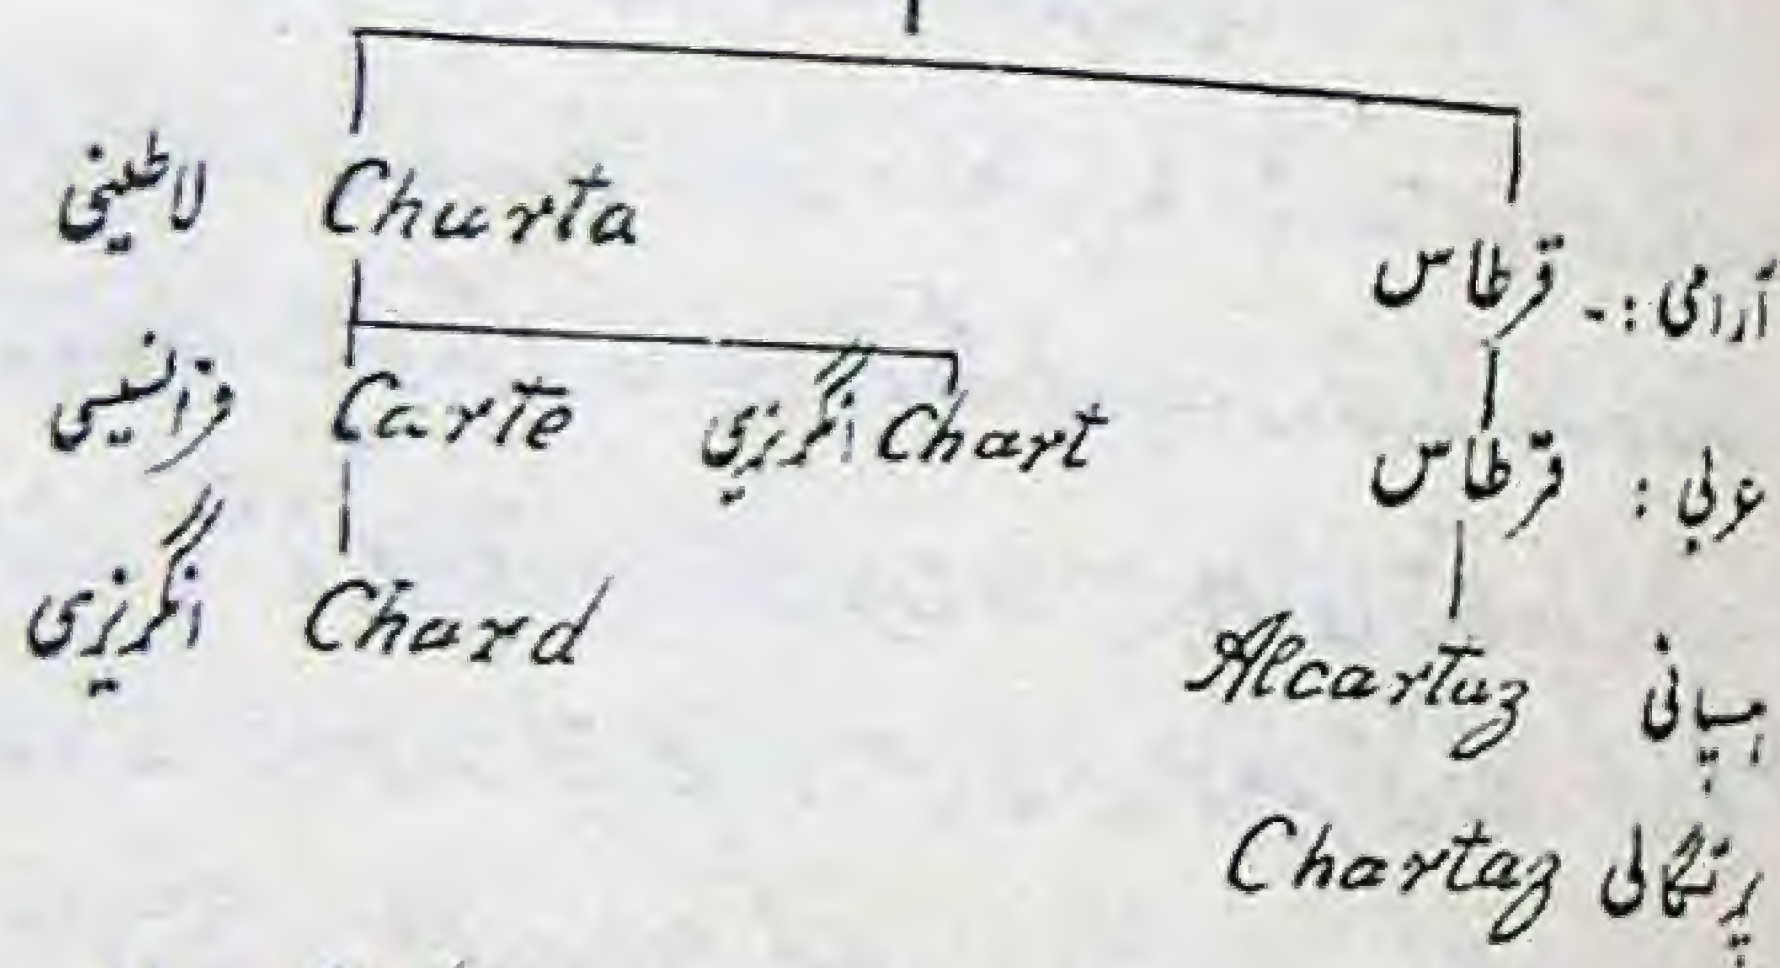 لاطینی Churta
آرامی :- قرطاس
فرانسیسی Carte
انگریزی Chart
عربی : قرطاس
انگریزی Chard
ہسپانی Alcartuz
پرتگالی Chartaz